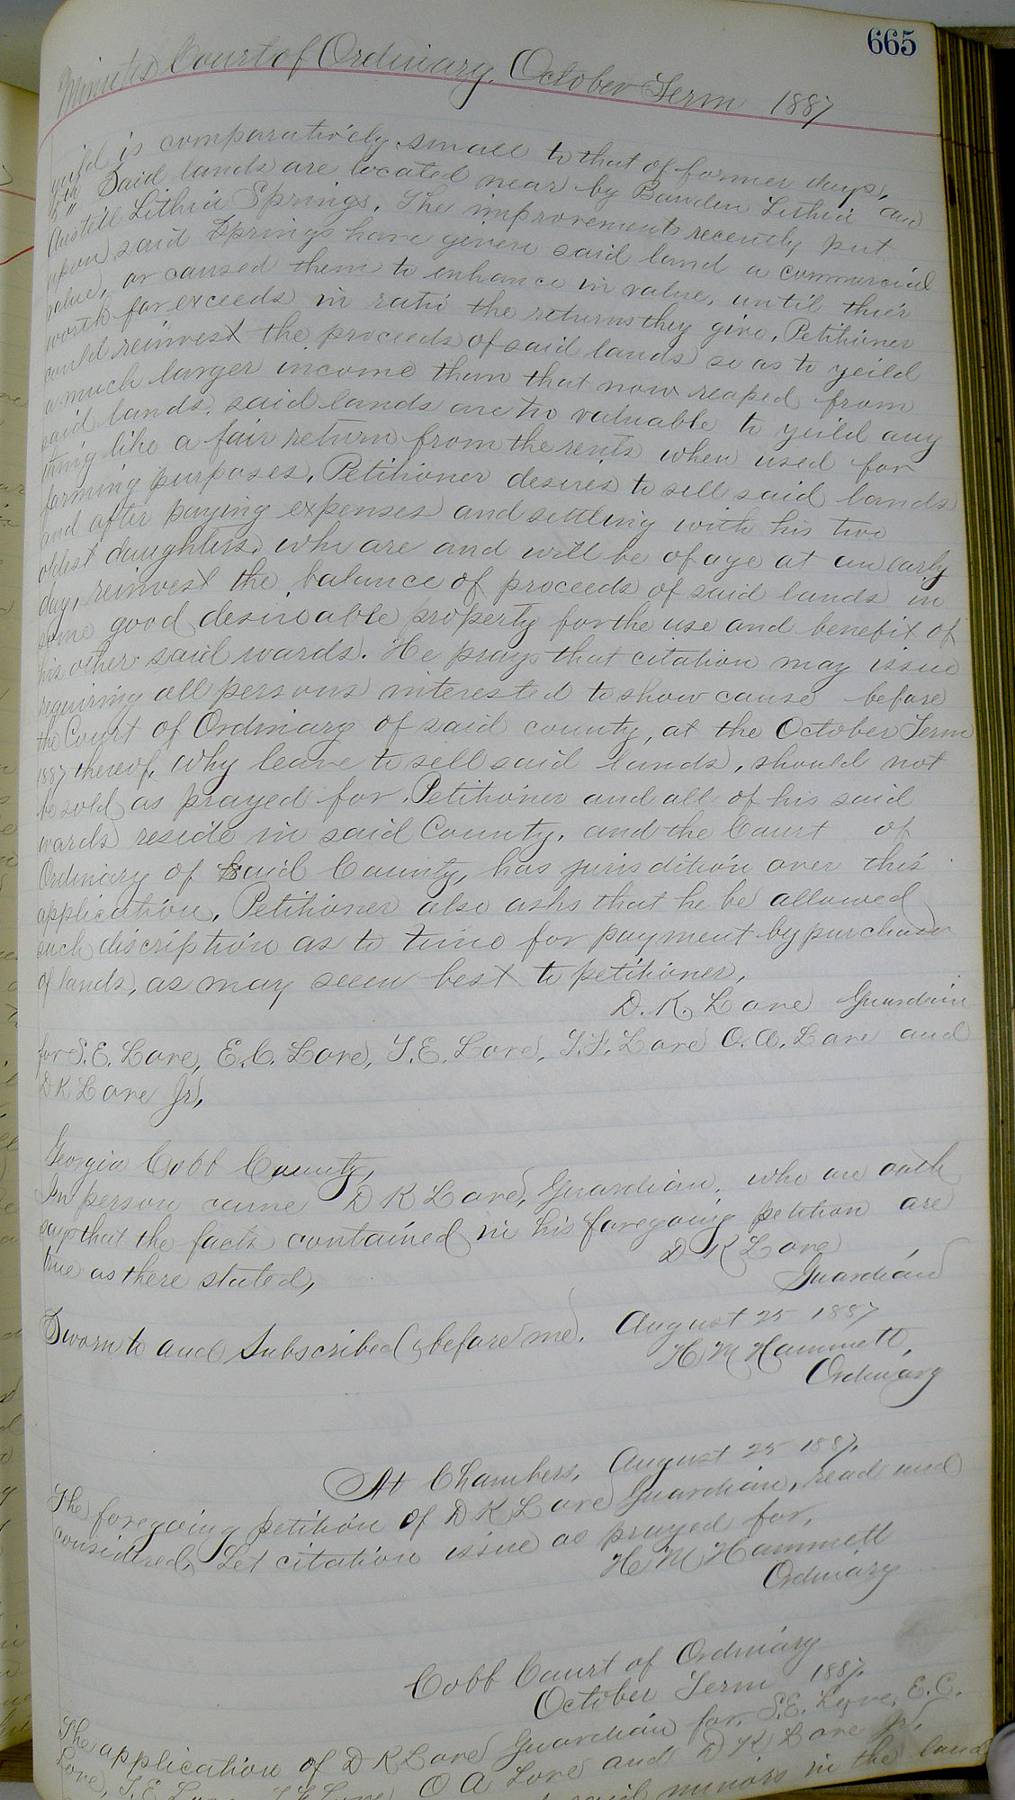 665
Minutes Court of Ordinary, October Term 1887
yeild is comparatively small to that of former days,
5th Said lands are located near by Bowden Lithia and
Austell Lithia Springs. The improvements recently put
upon said Springs have given said land a commercial
value, or caused them to enhance in value, until their
worth far exceeds in ratio the returns they give. Petitioner
could reinvest the proceeds of said lands so as to yeild
a much larger income them that now reaped from
said lands. said lands are too valuable to yeild any
thing like a fair return from the rents when used for
farming purposes. Petitioner desires to sell said lands
and after paying expenses and settling with his two
oldest daughters, who are and will be of age at an early
day, reinvest the balance of proceeds of said lands in
some good desireable property for the use and benefit of
his other said wards. He prays that citation may issue
requiring all persons interested to show cause before
the Court of Ordinary of said county, at the October Term
1887 thereof, Why leave to sell said lands, should not
be sold as prayed for. Petitioner and all of his said
wards reside in said County, and the Court of
Ordinary of Said County, has jurisdition over this
application. Petitioner also asks that he be allowed
such discription as to time for payment by purchaser
of lands, as may seem best to petitioner,
D. K. Love Guardian
for S. E. Love, E. C. Love, T. E. Love, T. F. Love O. A. Love and
D K Love Jr,
Georgia Cobb County,
In person came D K Love, Guardian, who on oath
says that the facts contained in his foregoing petition are
true as there stated, D K Love
Guardian
Sworn to and Subscribed before me. August 25 1887
H M Hammett,
Ordinary
At Chambers, August 25 1887.
The foregoing petition of D K Love Guardian, read and
considered, Let citation issue as prayed for,
H M Hammett
Ordinary
Cobb Court of Ordinary
October Term 1887.
The application of D K Love Guardian for S. E. Love, E. C.
Love, T. E Love O A Love and D K Love Jr,
said minors in the land